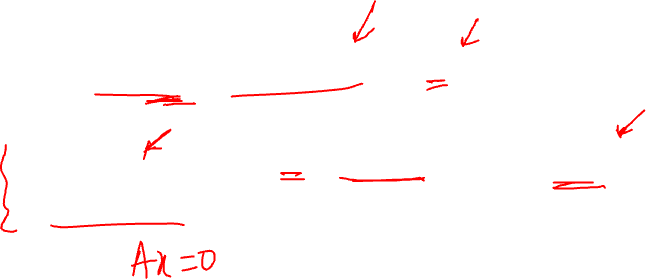 =
= =
Ax=0